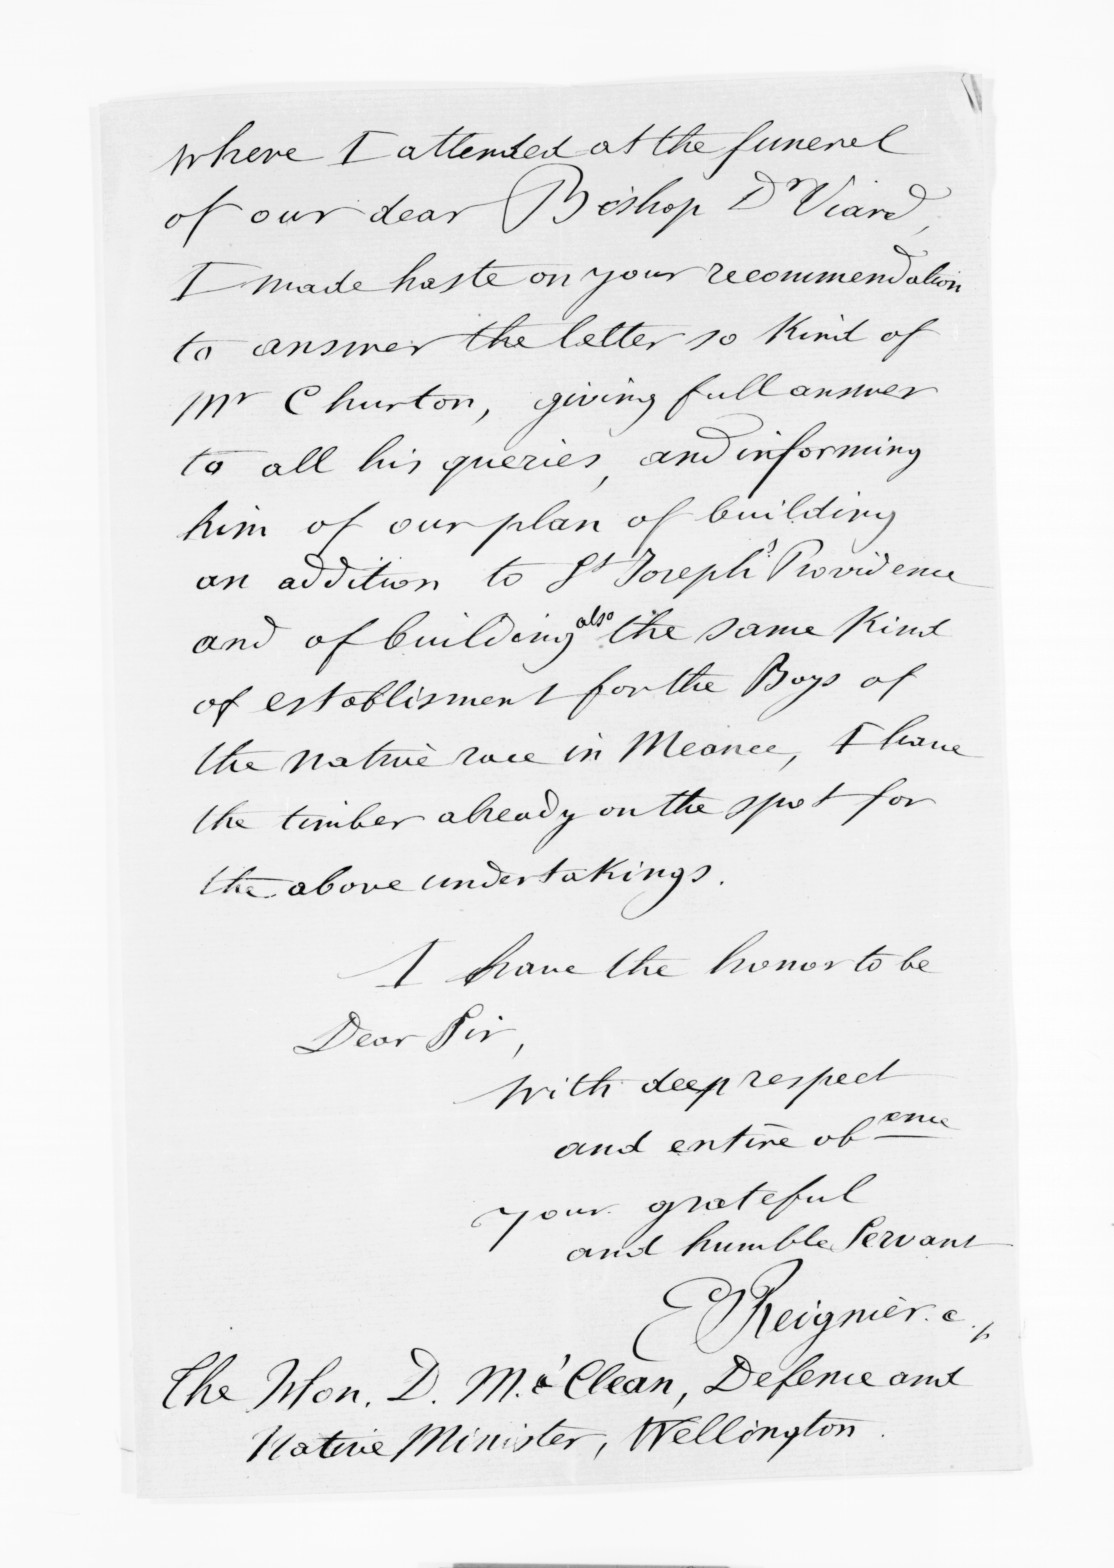 where I attended at the funerel
of our dear Bishop Dr Viard,
I made haste on your recommendation
to answer the letter so kind of
Mr Churton, giving full answer
to all his queries, and informing
him of our plan of building
an addition to St Joseph's Providence
and of building also the same kind
of establisment for the Boys of
the native race in Meanee, I have
the timber already on the spot for
the above undertakings.
I have the honor to be
Dear Sir,
with deep respect
and entire obence
your grateful
and humble Servant
E Reignier. c. p
The Hon. D. Mc Clean, Defence and
Native Minister, Wellington.